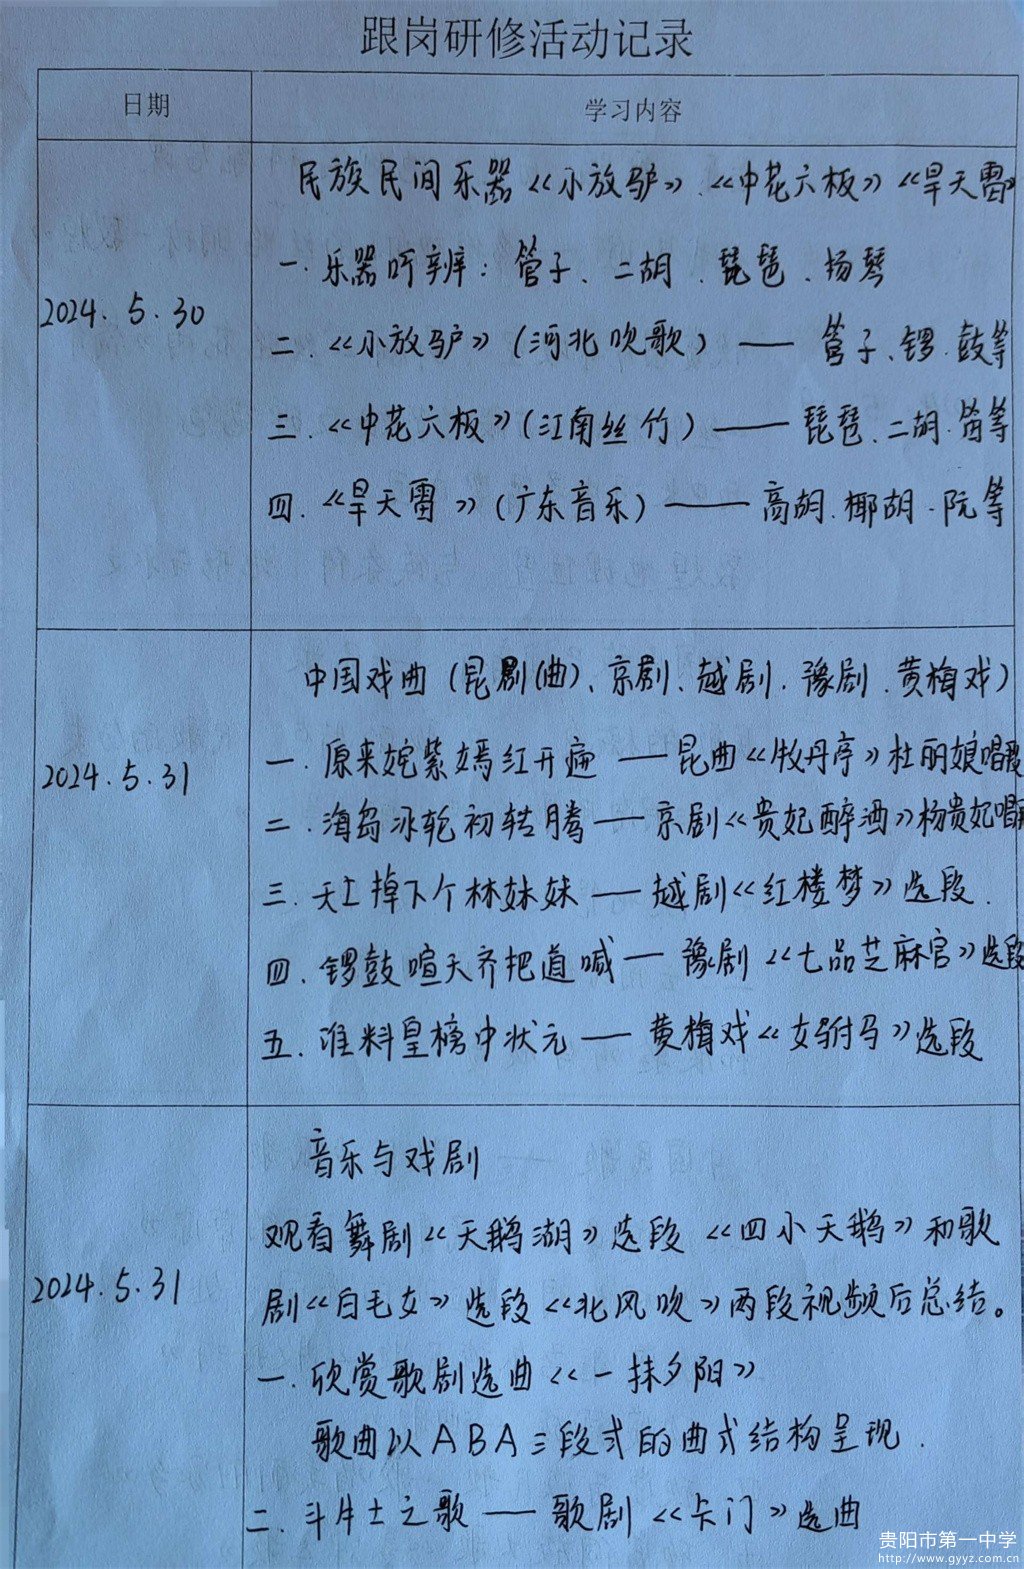 跟岗研修活动记录
日期
学习内容
民族民间乐器《小放驴》.《中花六板》《旱天雷》
一.乐器听辨:管子、二胡.琵琶.扬琴
2024.5.30
二.《小放驴》(河北吹歌)—— 管子、锣.鼓等
三.《中花六板》(江南丝竹)—— 琵琶.二胡.笛等
四.《旱天雷》(广东音乐)—— 高胡.椰胡.阮等
中国戏曲(昆剧(曲)、京剧、越剧.豫剧.黄梅戏)
2024.5.31
一.原来姹紫嫣红开遍——昆曲《牡丹亭》杜丽娘唱段
二.海岛冰轮初转腾——京剧《贵妃醉酒》杨贵妃唱段
三.天上掉下个林妹妹——越剧《红楼梦》选段.
四.锣鼓喧天齐把道喊—豫剧《七品芝麻官》选段
五.谁料皇榜中状元—黄梅戏《女驸马》选段
音乐与戏剧
观看舞剧《天鹅湖》选段《四小天鹅》和歌
2024.5.31
剧《白毛女》选段《北风吹》两段视频后总结。
一.欣赏歌剧选曲《一抹夕阳》
歌曲以ABA三段式的曲式结构呈现.
二.斗牛士之歌——歌剧《卡门》选曲
贵阳市第一中学
http://www.gyyz.com.cn